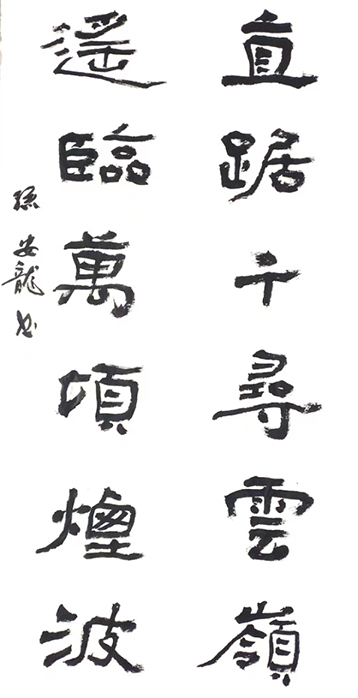 直踞千尋雲嶺
遙臨萬頃煙波
孫安龍书